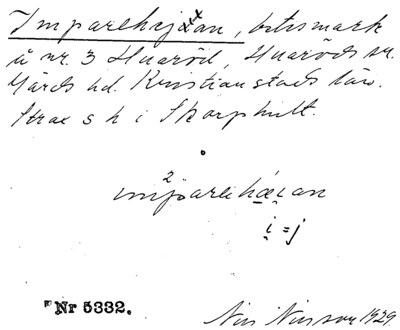 Imparehejan, betesmark
å nr. 3 Huaröd, Huaröds sn.
Gärds hd. Kristianstads län.
Strax s h i Skorphult.
i = j
Nr 5332.
Nils Nilsson 1929.